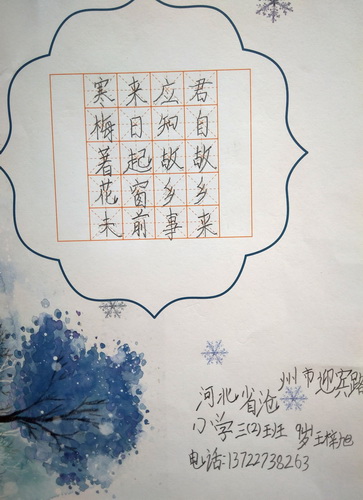 君自故乡来
应知故乡事
来日起窗前
寒梅著花未
河北省沧州市迎宾路
小学三(2)班 9岁 王梓旭
电话:13722738263